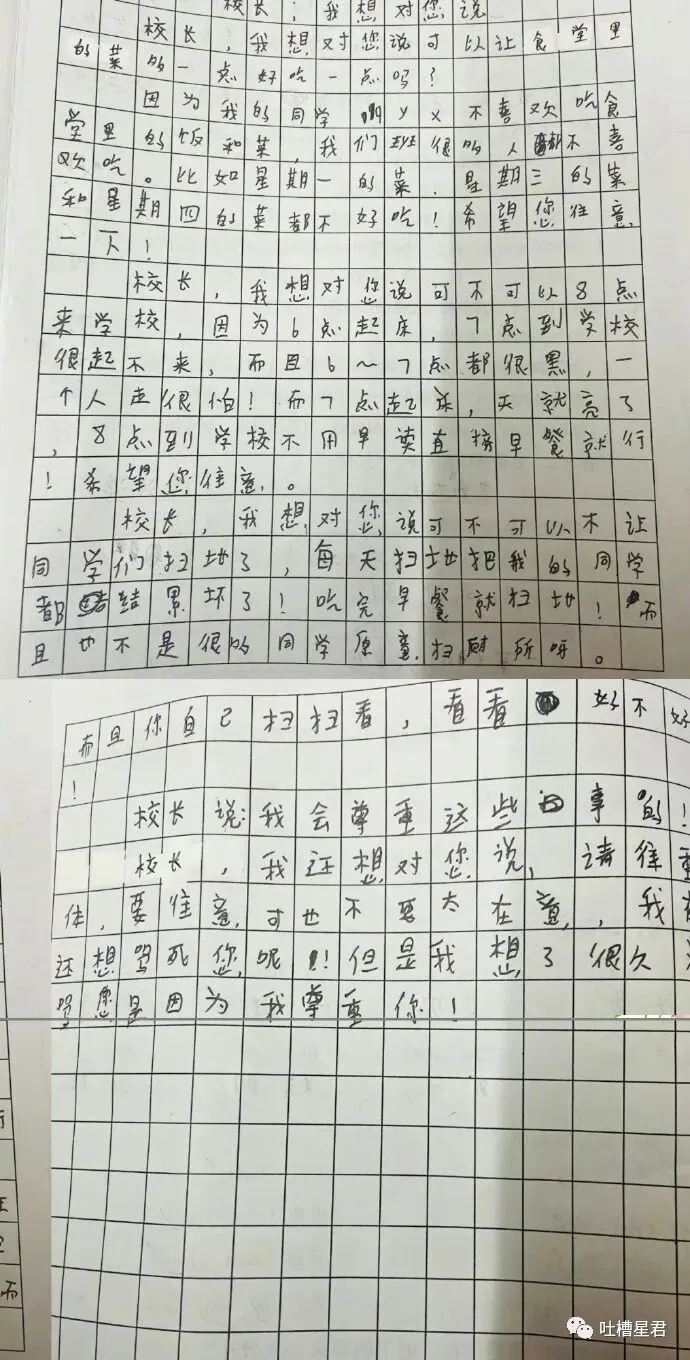 校长，我想对您说
校长，我想对您说可以让食堂里
的菜的一点好吃一点吗？
因为我的同学 y x 不喜欢吃食
堂里的饭和菜，我们班很多人都不喜
欢吃。比如星期一的菜，星期三的菜
和星期四的菜都不好吃！希望您注意
一下！
校长，我想对您说可不可以8点
来学校，因为6点起床，7点到学校
很起不来，而且6～7点都很黑，一
个人走很怕！而7点起床，天就亮了
，8点到学校不用早读直接早餐就行
！希望您注意。
校长，我想对您说可不可以不让
同学们扫地了，每天扫地把我的同学
都给累坏了！吃完早餐就扫地！而
且也不是很多同学愿意扫厕所呀。
而且你自己扫扫看，看看好不好
！
校长说：我会尊重这些事的！
校长，我还想对您说，请
体，要注意，可也不要太在意，我
还想骂死您呢！！但是我想了很久
骂您是因为我尊重你！
行
而
吐槽星君